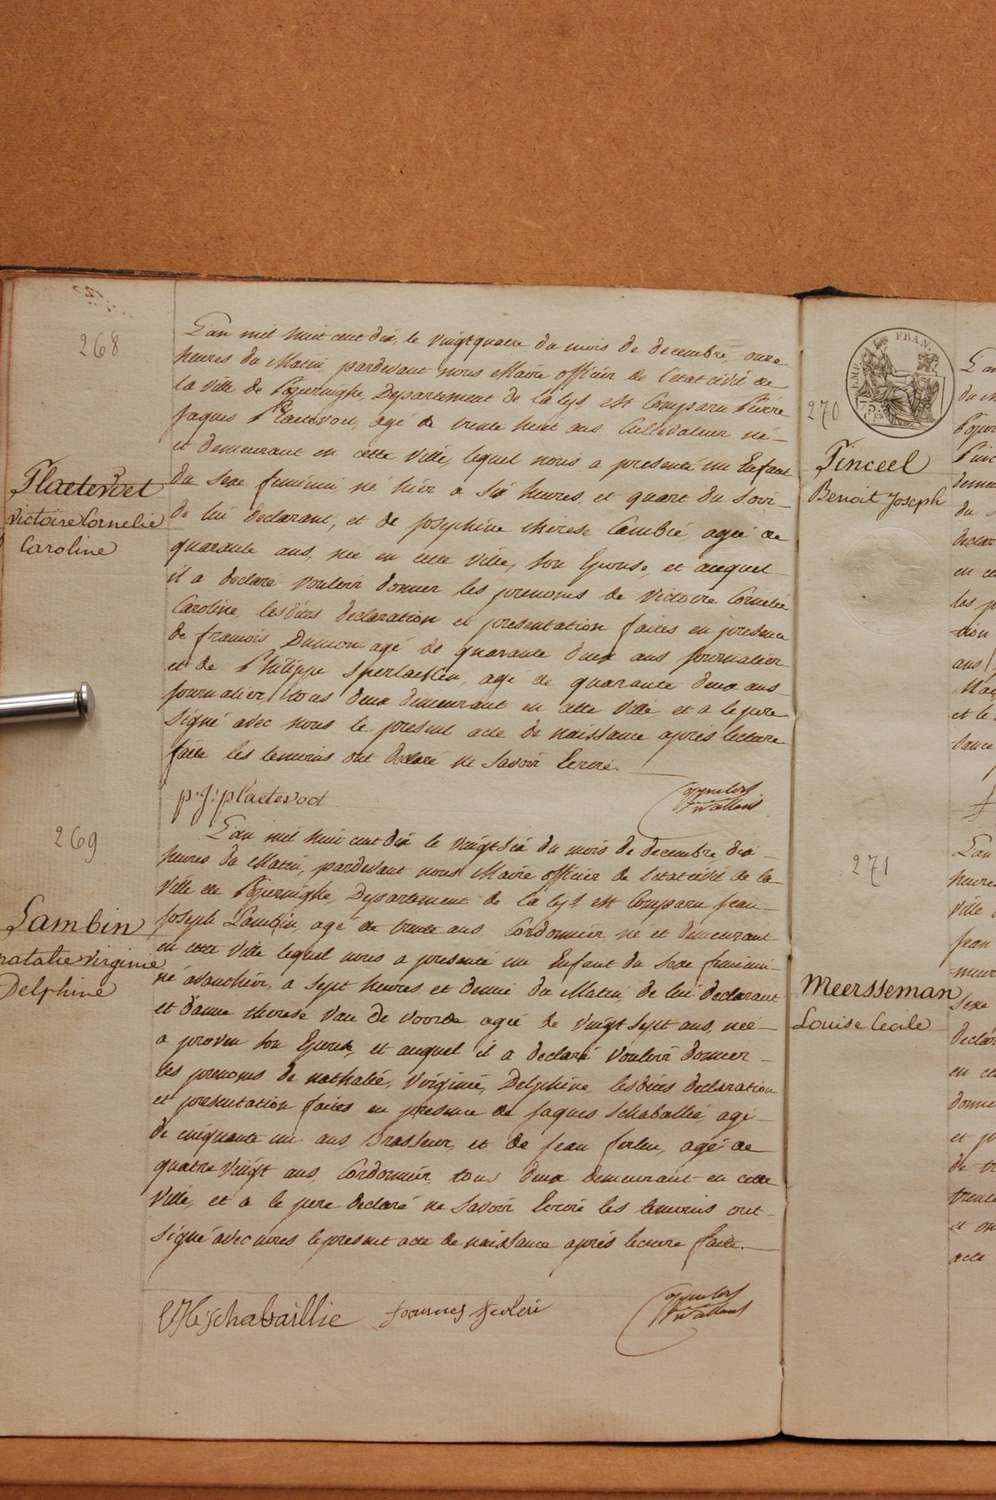 268
Plaetevoet
Victoire Cornelie
Caroline
L'an mil huit cent dix, le vingtquatre du mois de decembre, onze
heures du Matin, pardevant nous Maire officier de l'etat civil de
la ville de Poperinghe, Departement de la Lys est Comparu Pierre
Jaques Plaetevoet, agé de trente huit ans Cultivateur né
et demeurant en cette ville, lequel nous a presenté un Enfant
du Sexe feminin né hier a Six heures et quart du Soir
de lui declarant, et de Josephine therese Cambié, agée de
quarante ans, née en cette ville, Son Epouse, et auquel
il a declaré vouloir donner les prenoms de Victoire Cornelie
Caroline, lesdites declaration et presentation faites en presence
de francois Dumon agé de quarante deux ans journalier
et de Philippe agé de quarante deux ans
journalier, tous deux demeurant en cette ville et a le pere
signé avec nous le present acte de naissance après lecture
faite les temoins ont declaré ne Savoir Ecrire.
p:j: plaetevoet
269
Lambin
natalie virginie
Delphine
L'an mil huit cent dix le vingt Six du mois de decembre, dix
heures du Matin, pardevant nous Maire officier de l'etat civil de la
ville de Poperinghe, Departement de la Lys est Comparu Jean
Joseph Lambin, agé de trente ans Cordonnier, né et demeurant
en cette ville lequel nous a presenté un Enfant du Sexe feminin
né avanthier, a Sept heures et demie du Matin, de lui declarant
et d'anne therese Van de Voorde agée de vingt Sept ans, née
a proven Son Epouse, et auquel il a declaré vouloir donner
les prenoms de nathalie, Virginie, Delphine, lesdites declaration
et presentation faites en presence de Jaques Schaballie, agé
de cinquante un ans, Brasseur, et de Jean agé de
quatre vingt ans, Cordonnier, tous deux demeurant en cette
ville, et a le pere declaré ne Savoir Ecrire les temoins ont
signé avec nous le present acte de naissance après lecture faite.
Schabaillie
270
EMP FRAN
Tinceel
Benoit Joseph
271
Meersseman
Louise Cecile